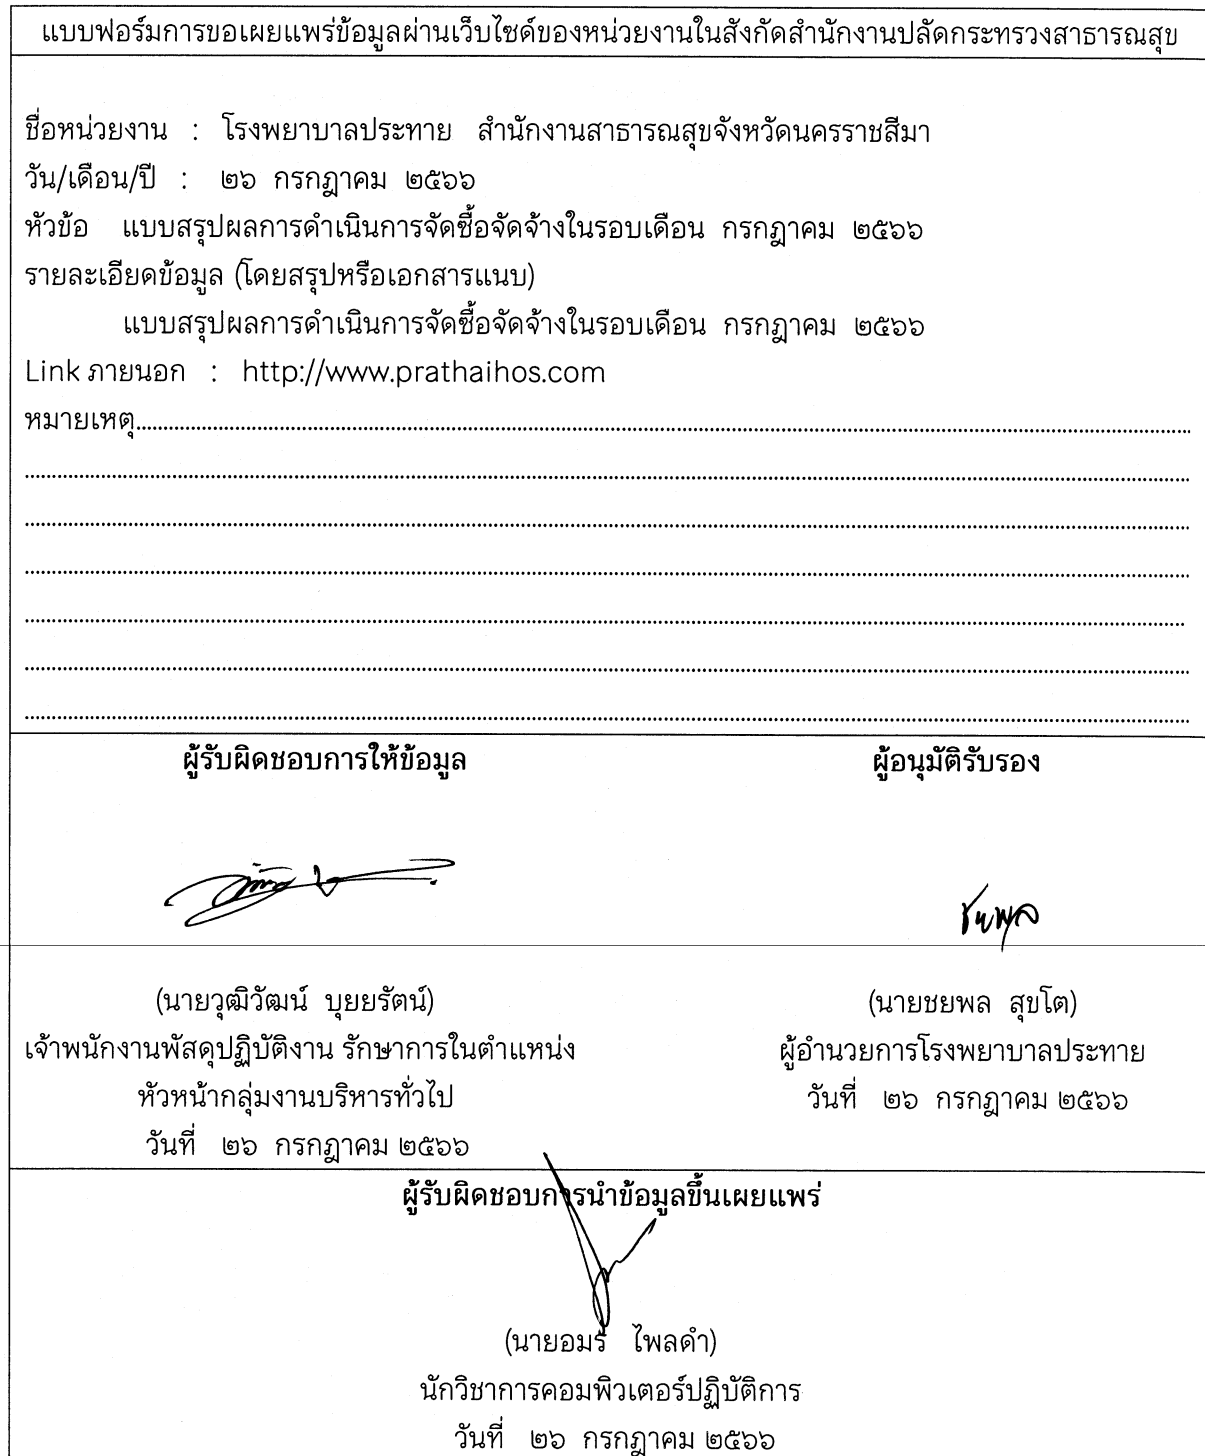 แบบฟอร์มการขอเผยแพร่ข้อมูลผ่านเว็บไซด์ของหน่วยงานในสังกัดสำนักงานปลัดกระทรวงสาธารณสุข
ชื่อหน่วยงาน : โรงพยาบาลประทาย สำนักงานสาธารณสุขจังหวัดนครราชสีมา
วัน/เดือน/ปี : ๒๖ กรกฎาคม ๒๕๖๖
หัวข้อ แบบสรุปผลการดำเนินการจัดซื้อจัดจ้างในรอบเดือน กรกฎาคม ๒๕๖๖
รายละเอียดข้อมูล (โดยสรุปหรือเอกสารแนบ)
แบบสรุปผลการดำเนินการจัดซื้อจัดจ้างในรอบเดือน กรกฎาคม ๒๕๖๖
Link ภายนอก : http://www.prathaihos.com
หมายเหตุ
ผู้รับผิดชอบการให้ข้อมูล
(นายวุฒิวัฒน์ บุยยรัตน์)
เจ้าพนักงานพัสดุปฏิบัติงาน รักษาการในตำแหน่ง
หัวหน้ากลุ่มงานบริหารทั่วไป
วันที่ ๒๖ กรกฎาคม ๒๕๖๖
ผู้อนุมัติรับรอง
ชยพล
(นายชยพล สุขโต)
ผู้อำนวยการโรงพยาบาลประทาย
วันที่ ๒๖ กรกฎาคม ๒๕๖๖
ผู้รับผิดชอบการนำข้อมูลขึ้นเผยแพร่
(นายอมร ไพลดำ)
นักวิชาการคอมพิวเตอร์ปฏิบัติการ
วันที่ ๒๖ กรกฎาคม ๒๕๖๖